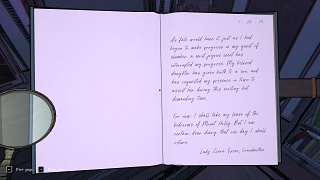 As fate would have it just as I had
begun to make progress in my quest of
slumber, a most joyous event has
interrupted my progress. My beloved
daughter has given birth to a son, and
has requested my presence in town to
assist her during this exciting but
demanding time.
For now I shall take my leave of the
bedrooms of Mount Holly. But I am
certain, dear diary, that one day I shall
return.
Lady Clara Epsen,